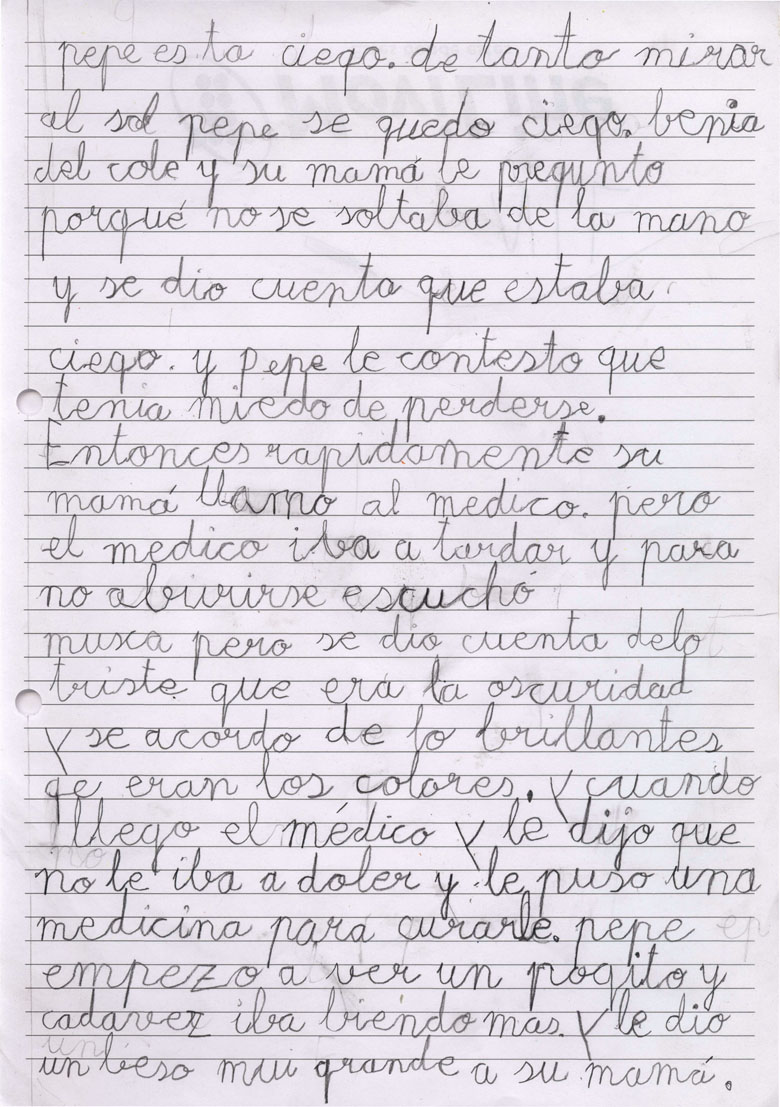 pepe esta ciego. de tanto mirar
al sol pepe se quedo ciego. benia
del cole y su mamá le pregunto
porqué no se soltaba de la mano
y se dio cuenta que estaba
ciego. y pepe le contesto que
tenia miedo de perderse.
Entonces rapidamente su
mamá llamo al medico. pero
el medico iba a tardar y para
no aburirse escuchó
musca pero se dio cuenta delo
triste que era la oscuridad
y se acordo de lo brillantes
qe eran los colores. y cuando
llego el médico y le dijo que
no le iba a doler y le puso una
medicina para curarle. pepe
empezo a ver un pogito y
cadavez iba biendo mas. y le dio
un beso mui grande a su mamá.